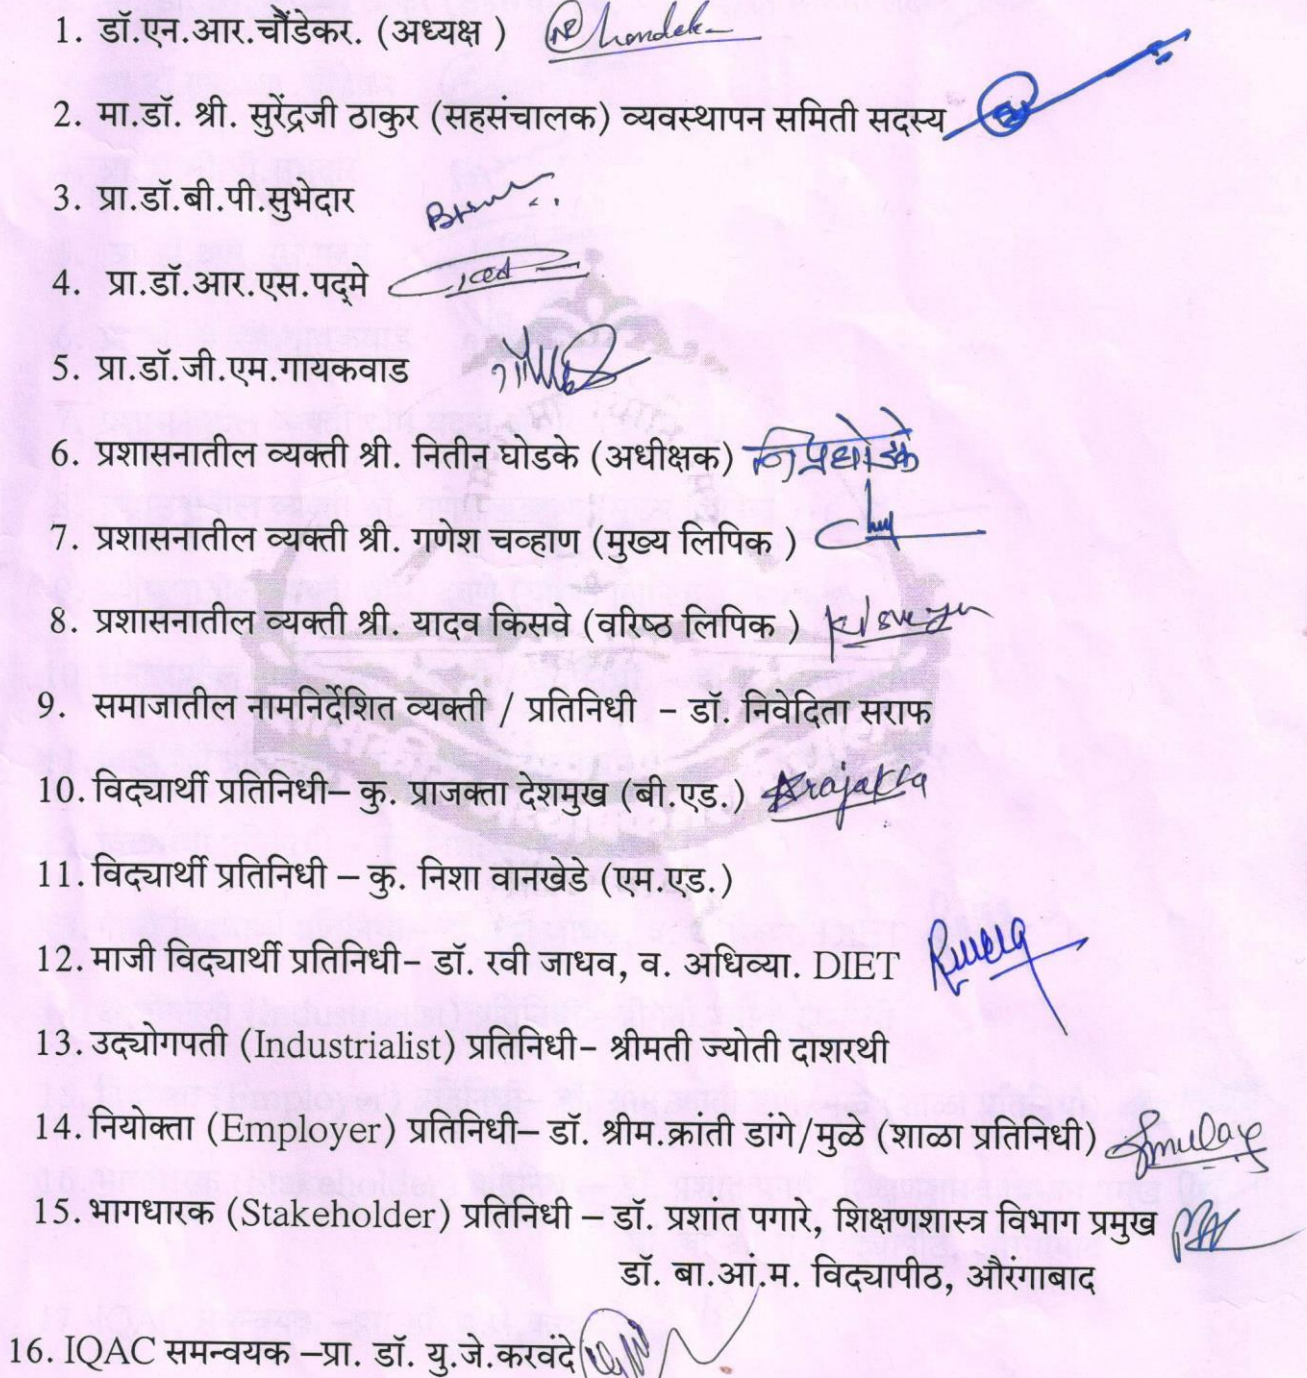 1. डॉ.एन.आर.चौंडेकर. (अध्यक्ष )
2. मा.डॉ. श्री. सुरेंद्रजी ठाकुर (सहसंचालक) व्यवस्थापन समिती सदस्य
3. प्रा.डॉ.बी.पी.सुभेदार
4. प्रा.डॉ.आर.एस.पद्मे
5. प्रा.डॉ.जी.एम.गायकवाड
6. प्रशासनातील व्यक्ती श्री. नितीन घोडके (अधीक्षक)
7. प्रशासनातील व्यक्ती श्री. गणेश चव्हाण (मुख्य लिपिक )
8. प्रशासनातील व्यक्ती श्री. यादव किसवे (वरिष्ठ लिपिक )
9. समाजातील नामनिर्देशित व्यक्ती / प्रतिनिधी - डॉ. निवेदिता सराफ
10. विद्यार्थी प्रतिनिधी– कु. प्राजक्ता देशमुख (बी.एड.) Prajakta
11. विद्यार्थी प्रतिनिधी – कु. निशा वानखेडे (एम.एड.)
12. माजी विद्यार्थी प्रतिनिधी– डॉ. रवी जाधव, व. अधिव्या. DIET
13. उद्योगपती (Industrialist) प्रतिनिधी– श्रीमती ज्योती दाशरथी
14. नियोक्ता (Employer) प्रतिनिधी– डॉ. श्रीम.क्रांती डांगे/मुळे (शाळा प्रतिनिधी)
15. भागधारक (Stakeholder) प्रतिनिधी – डॉ. प्रशांत पगारे, शिक्षणशास्त्र विभाग प्रमुख
डॉ. बा.आं.म. विद्यापीठ, औरंगाबाद
16. IQAC समन्वयक –प्रा. डॉ. यु.जे.करवंदे